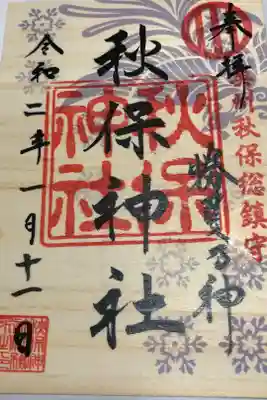 奉拝
秋保総鎮守
勝負の神
秋保神社
秋保神社
令和二年一月十一日